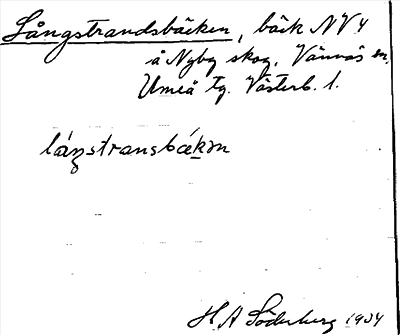 Långstrandsbäcken, bäck NV4
å Nyby skog, Vännäs sn,
Umeå tg. Västerb. l.
låŋstransbækən
H A Söderberg 1934